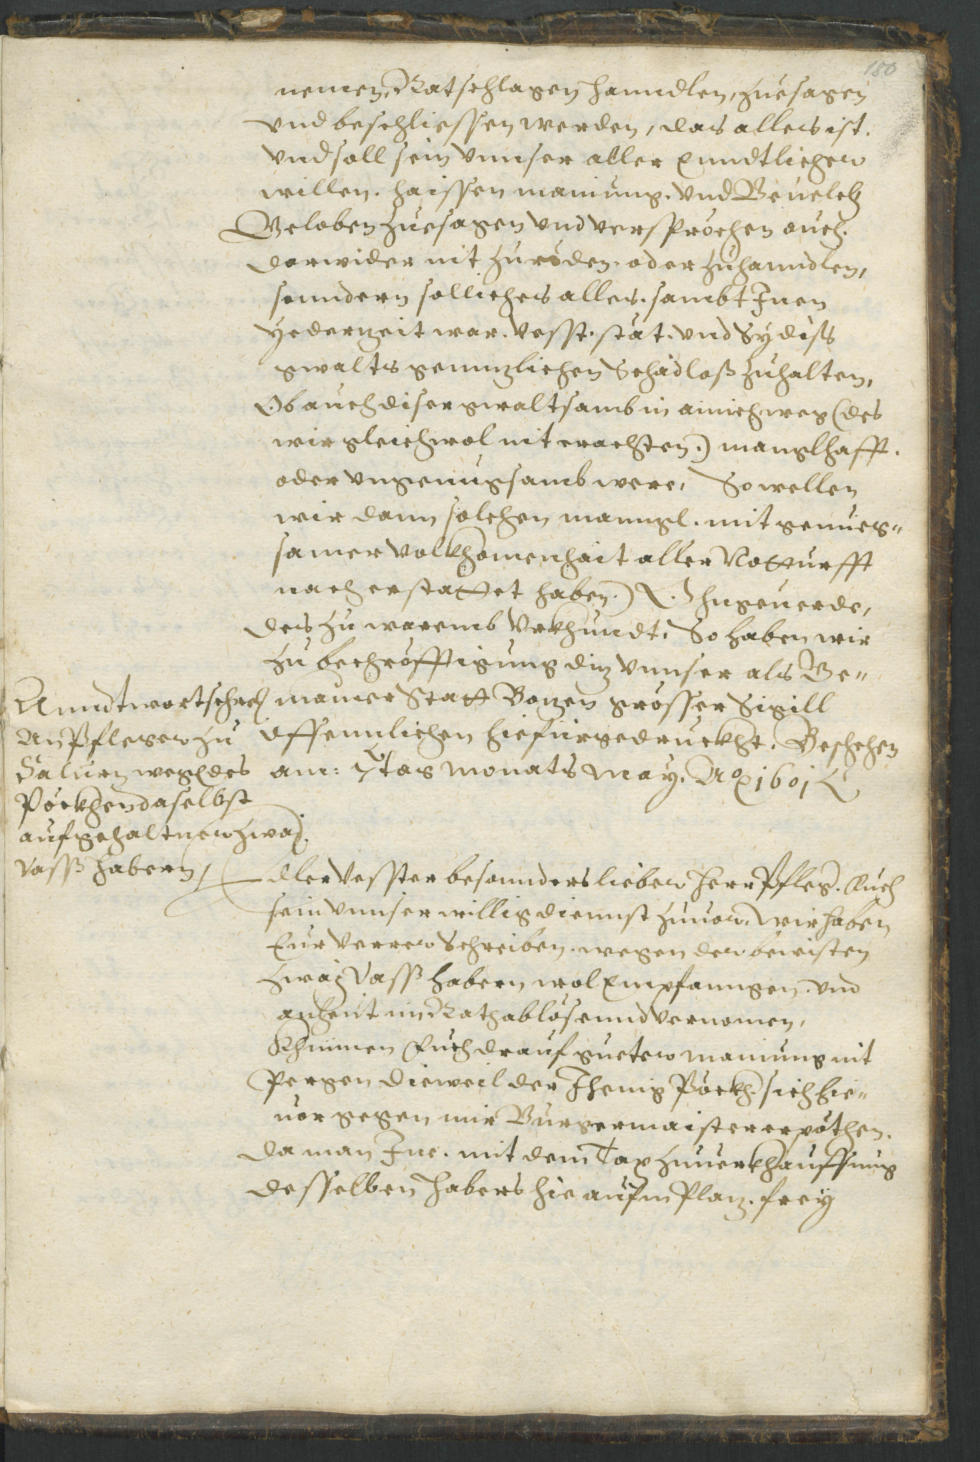 180
nemen, Ratschlagen hanndlen, zuesagen
vnd beschliessen werden, das alles ist.
vnd soll sein vnnser aller enndtlicher
willen. haissen mainung. vnd Beuelch
Geloben zuesagen vnd versprechen auch.
darwider nit zu röden. oder zuhanndlen,
sonndern solliches alles. sambt Inen
yederzeit war. vesst. stät. vnd Sy diss
gwalts genntzlichen Schadloß zuhalten,
Ob auch diser gwaltsamb in ainich weg (des
wir gleichwol nit erachten.) manglhafft.
oder vngenuegsamb were, So wellen
wir dann solchen manngl. mit genueg„
samer volkhomenhait aller Notturfft
nach erstattet haben.) Ohngeuerde,
des zu warem Vrkhundt. So haben wir
zu becröfftigung diz vnnser als Ge„
mainer Statt Bozen grosser Sigill
offenntlichen hiefürgedruckht. Beschehen
am: 7 tag Monats May. Ao 1601
Anndtwortschreib
An Pfleger zu
Salurn weg des
Pöckhen daselbst
aufgehaltner zway
Vass habern /
Edler Vesster besonnders lieber Herr Pfleg. Euch
sein vnnser willig diennst zuuor. Wir haben
Eur verrer Schreiben. wegen der bewisten
zway Vass habern wol Empfanngen. vnd
anheut in Rath ablösennd vernomen,
Khünnen Euch drauf gueter mainung nit
Pergen dieweil der Ihenig Pöckh. sich hie„
uor gegen mir Burgermaister erpöthen.
da man Ine. mit dem Tax zuuerkhauffung
desselben habers hie aufm Plaz. frey